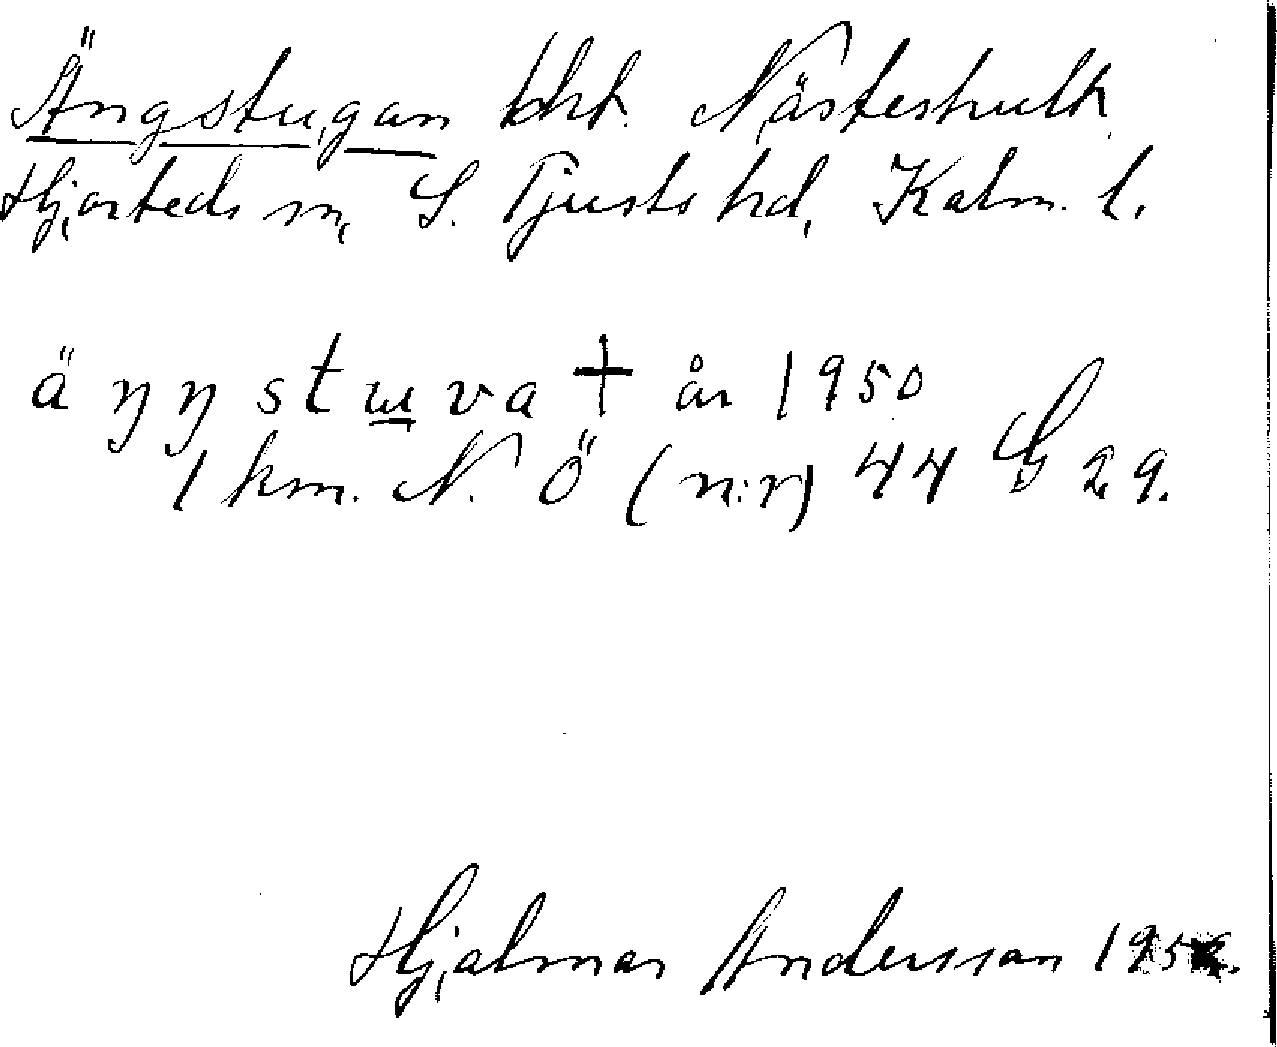 Ängstugan tht. Nästeshult
Hjorteds sn, S. Tjusts hd, Kalm. l.
ä ŋ ŋ s t u v a + år 1950
1 km. N. Ö (n:r) 44 G 29.
Hjalmar Andersson